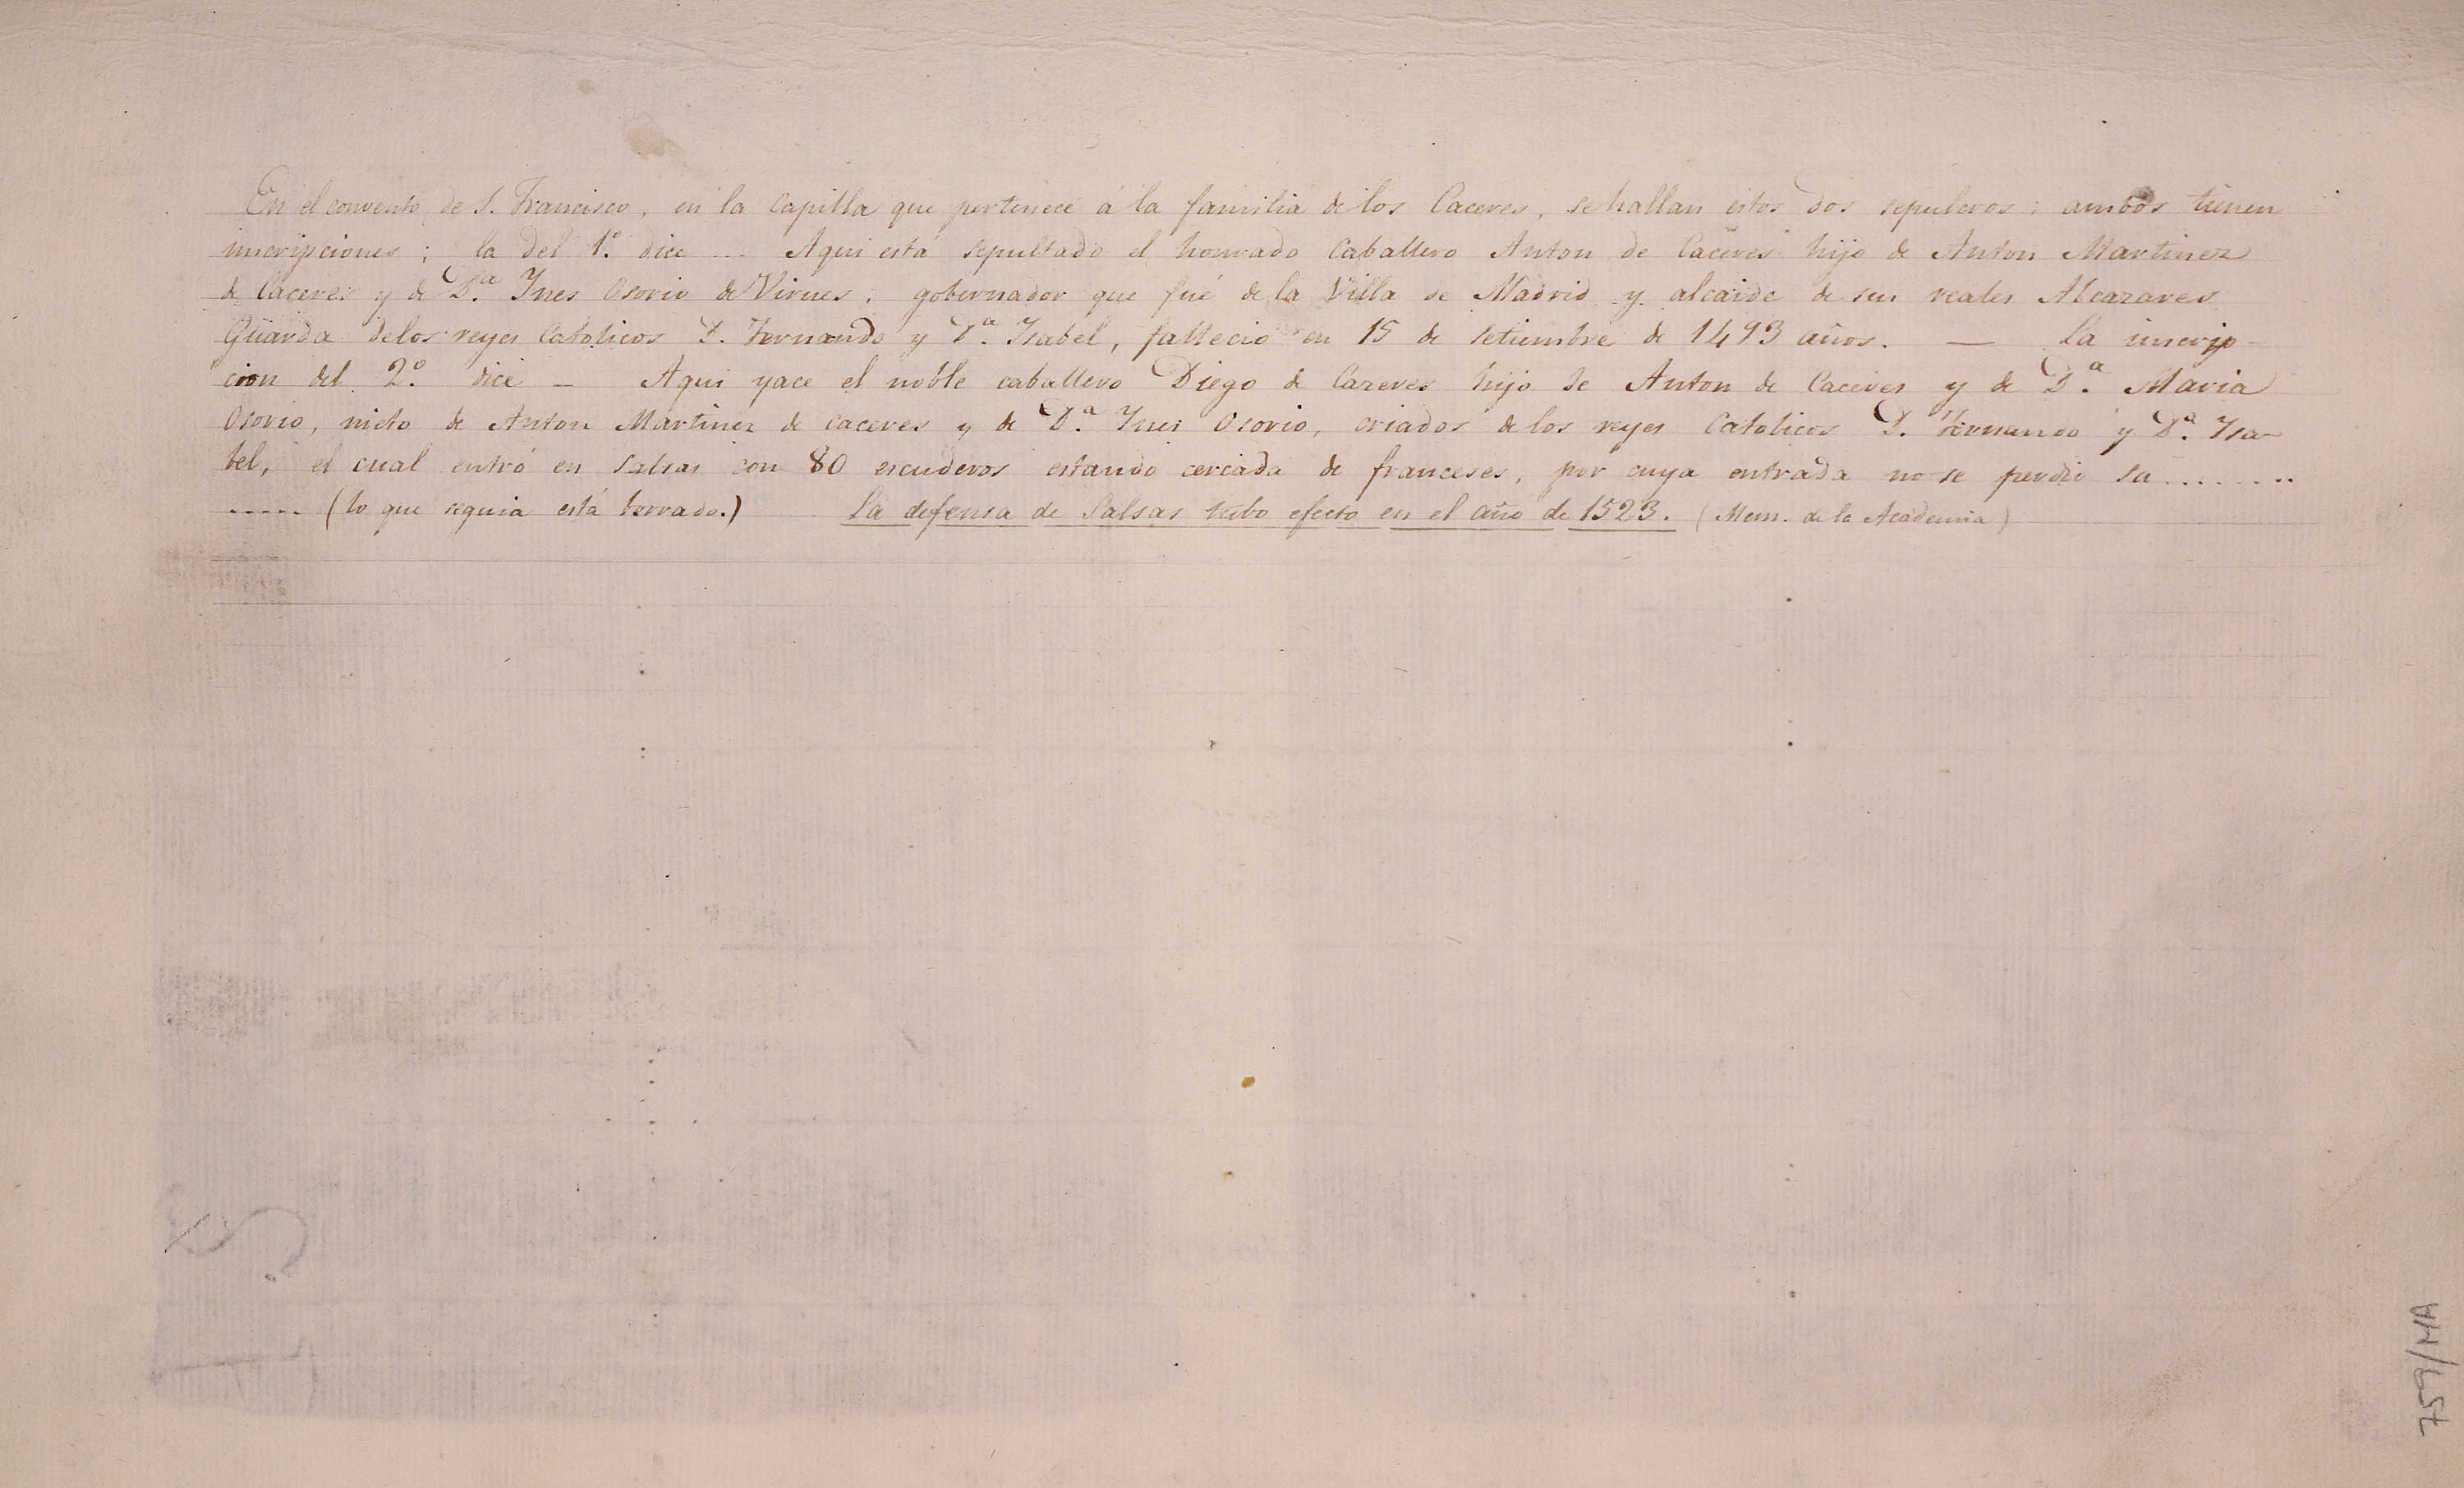 En el convento de S. Francisco, en la Capilla que pertenece á la familia de los Caceres, se hallan estos dos sepulcros; ambos tienen
inscripciones; la del 1.º dice ... Aqui está sepultado el honrado Caballero Anton de Caceres hijo de Anton Martinez
de Caceres y de D.ª Ines Osorio de Virues, gobernador que fué de la Villa de Madrid y alcaide de sus reales Alcazares
Guarda de los reyes Catolicos D. Fernando y D.ª Isabel, fallecio en 15 de Setiembre de 1493 años. — La inscrip-
cion del 2.º dice — Aqui yace el noble caballero Diego de Cazeres hijo de Anton de Caceres y de D.ª Maria
Osorio, nieto de Anton Martinez de Caceres y de D.ª Ines Osorio, criados de los reyes Catolicos D. Fernando y D.ª Isa-
bel, el cual entró en Salsas con 80 escuderos estando cercada de franceses, por cuya entrada no se perdio su ........
..... (lo que seguia está borrado.) La defensa de Salsas tubo efecto en el año de 1523. (Mem. de la Academia)
HA/757